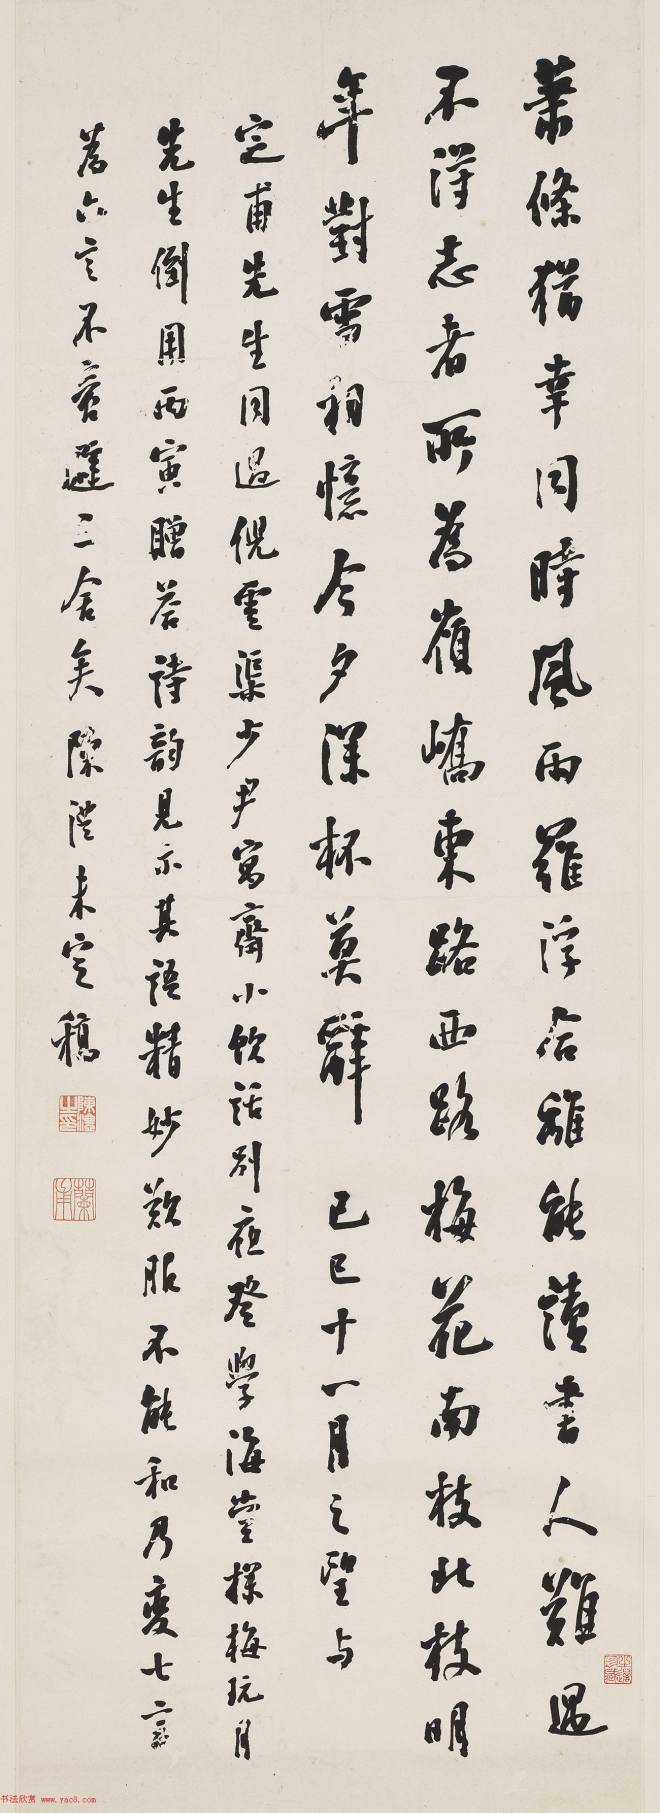 蕭條猶幸同時風雨羅浮合離能讀書人難遇
不得志者所為嶺嶠東路西路梅花南枝北枝明
年對雪相憶今夕深杯莫辭 己巳十一月之望与
定甫先生同過倪雲渠少尹寓齋小飲話別夜登學海堂探梅玩月
先生倒用丙寅贈荅詩韵見示其語精妙歎服不能和乃變七言
為六言不啻避三舍矣陳澧未定稿
陳澧之印
蘭甫
书法欣赏 www.yac8.com